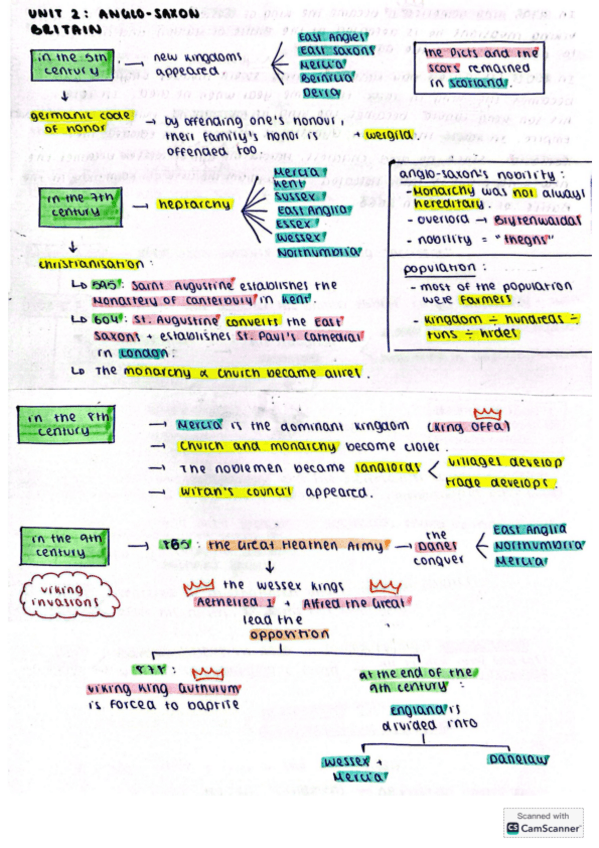 UNIT 2: ANGLO-SAXON
BRITAIN
in the 5th
century
→ new kingdoms
appeared.
East Angles
East Saxons
Mercia
Bernicia
Deira
the Picts and the
Scots remained
in Scotland.
germanic code
of honor
→ by offending one's honour,
their family's honor is
offended too.
+ wergild.
in the 7th
century
→ heptarchy
Mercia
Kent
Sussex
East Anglia
Essex
Wessex
Northumbria
anglo-saxon's nobility:
- Monarchy was not always
hereditary.
- overlord → Brytenwaldas
- nobility = "thegns"
population:
- most of the population
were farmers
- kingdom ÷ hundreds ÷
tuns ÷ hides
christianisation:
↳ 595: Saint Augustine establishes the
Monastery of Canterbury in Kent.
↳ 604: St. Augustine converts the East
Saxons + establishes St. Paul's Cathedral
in London.
↳ The monarchy & church became allies.
in the 8th
century
→ Mercia is the dominant kingdom (King Offa)
→ Church and monarchy become closer.
→ The noblemen became landlords < villages develop
trade develops.
→ Witan's council appeared.
in the 9th
century
→ 865: the Great Heathen Army → the
Danes
conquer
East Anglia
Northumbria
Mercia
viking
invasions
the Wessex kings
Aethelred I + Alfred the Great
lead the
opposition
878:
Viking King Guthurum
is forced to baptise
at the end of the
9th century:
England is
divided into
Wessex +
Mercia
Danelaw
Scanned with
CS CamScanner